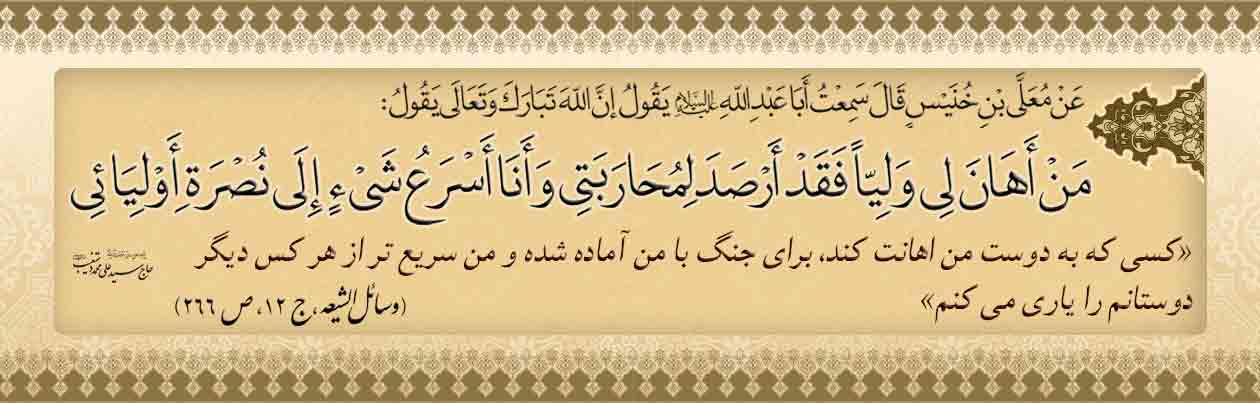 عَنْ مُعَلَّی بْنِ خُنَیْسٍ قَالَ سَمِعْتُ أَبَا عَبْدِ اللّٰهِ علیه‌السلام یَقُولُ إِنَّ اللّٰهَ تَبَارَكَ وَ تَعَالَی یَقُولُ:
مَنْ أَهَانَ لِی وَلِیّاً فَقَدْ أَرْصَدَ لِمُحَارَبَتِی وَ أَنَا أَسْرَعُ شَیْءٍ إِلَی نُصْرَةِ أَوْلِیَائِی
«کسی که به دوست من اهانت کند، برای جنگ با من آماده شده و من سریع تر از هر کس دیگر
دوستانم را یاری می کنم» (وسائل الشیعه، ج ۱۲، ص ۲۶۶)